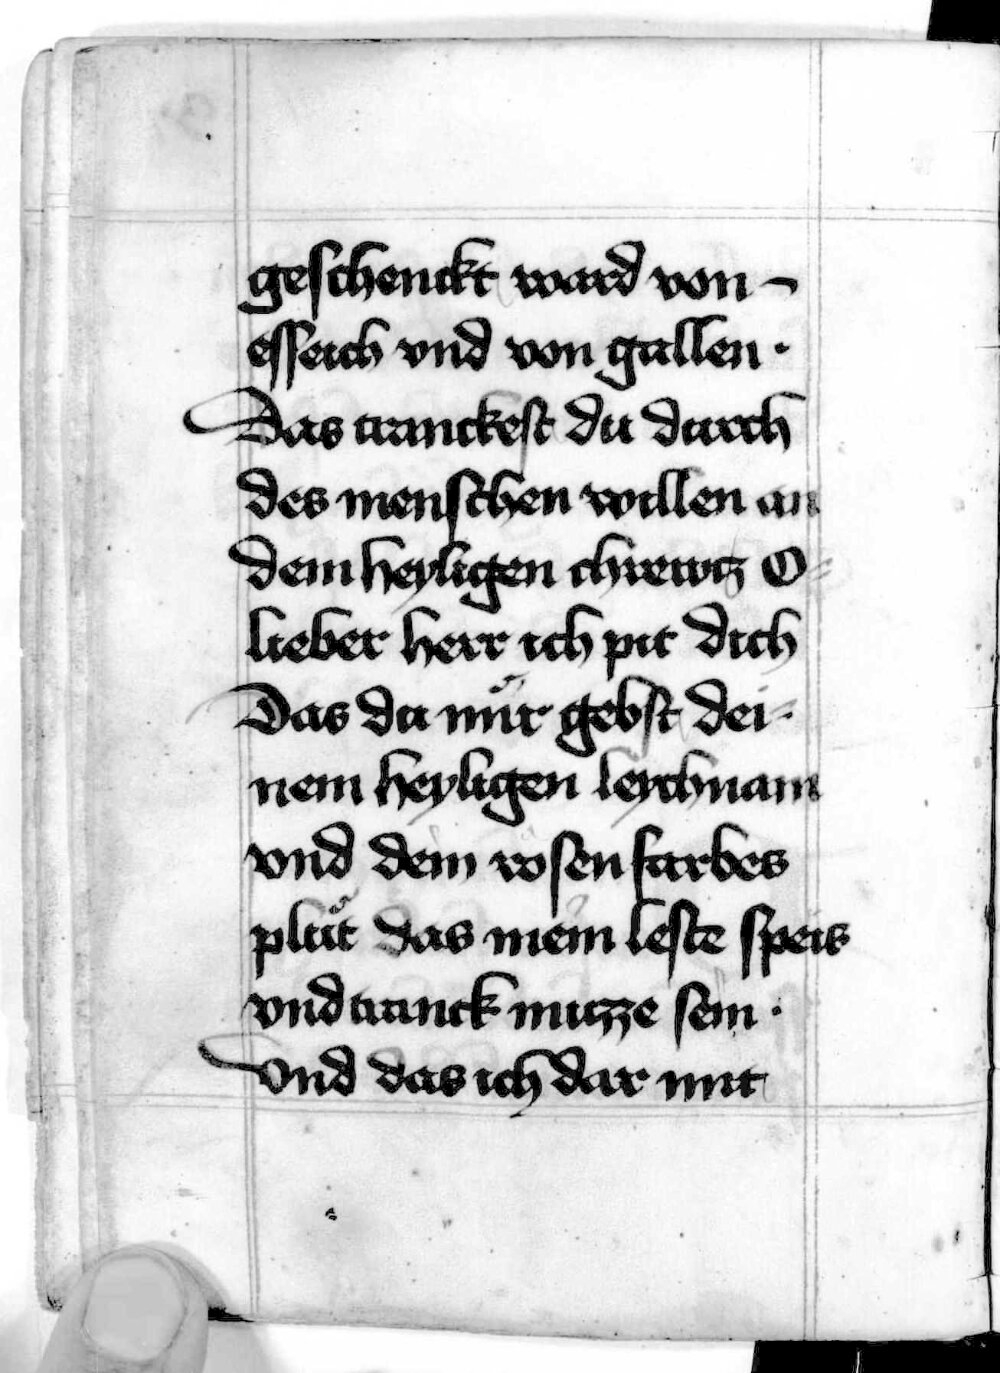 geschenckt ward von
esseich vnd von gallen ·
Das tranckest du durch
des menschen willen an
dem heyligen chrewtz O
lieber herr ich pit dich
Das du mir gebst dei-
nem heyligen leychnam
vnd dein rosen farbes
plůt das mein leste speis
vnd tranck muzze sein ·
Vnd das ich dar mit